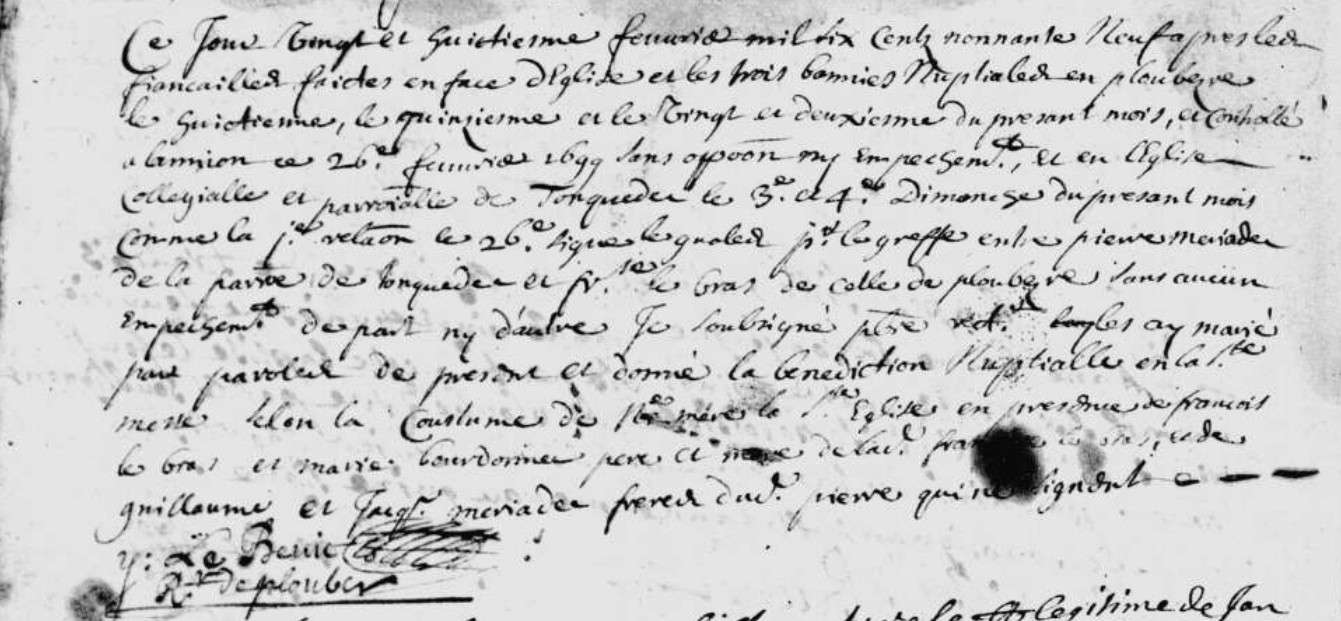 Ce Jour Vingt et huictiesme feuvrier mil six Cents nonnante Neuf apres les
fiancailles faictes en face dEglise et les trois bannies Nuptiales en ploubezre
le huictiesme, le quinziesme et le Vingt et deuxiesme du presant mois, et Controllé
a lannion ce 26.e feuvrier 1699 sans oppoon ny Empechemt, Et en lEglise
Collegialle et parroialle de Tonquedec le 3.e et 4.e Dimanche du presant mois
Comme la relaon le 26.e signe le guales le greffe entre pierre meriadec
de la parre de tonquedec et fr.se le bras de celle de ploubezre sans aucun
Empechemt de part ny d'autre Je soubsigné pbre rect.r les ay marié
par paroles de presént et donné la benediction Nuptialle en la S.te
messe selon la Coustume de Nre mere la Ste Eglise en presence de francois
le bras et marie bourdonnec pere et mere de lad. le bras, et de
guillaume et Jacq. meriadec freres dud. pierre qui ne signent
y: Le Bevic
R.r de plouber
legitime de Jan